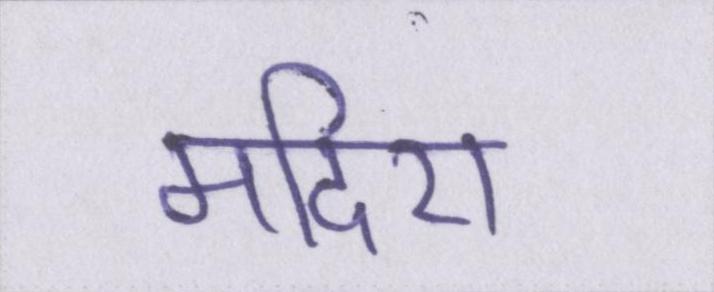 मदिरा